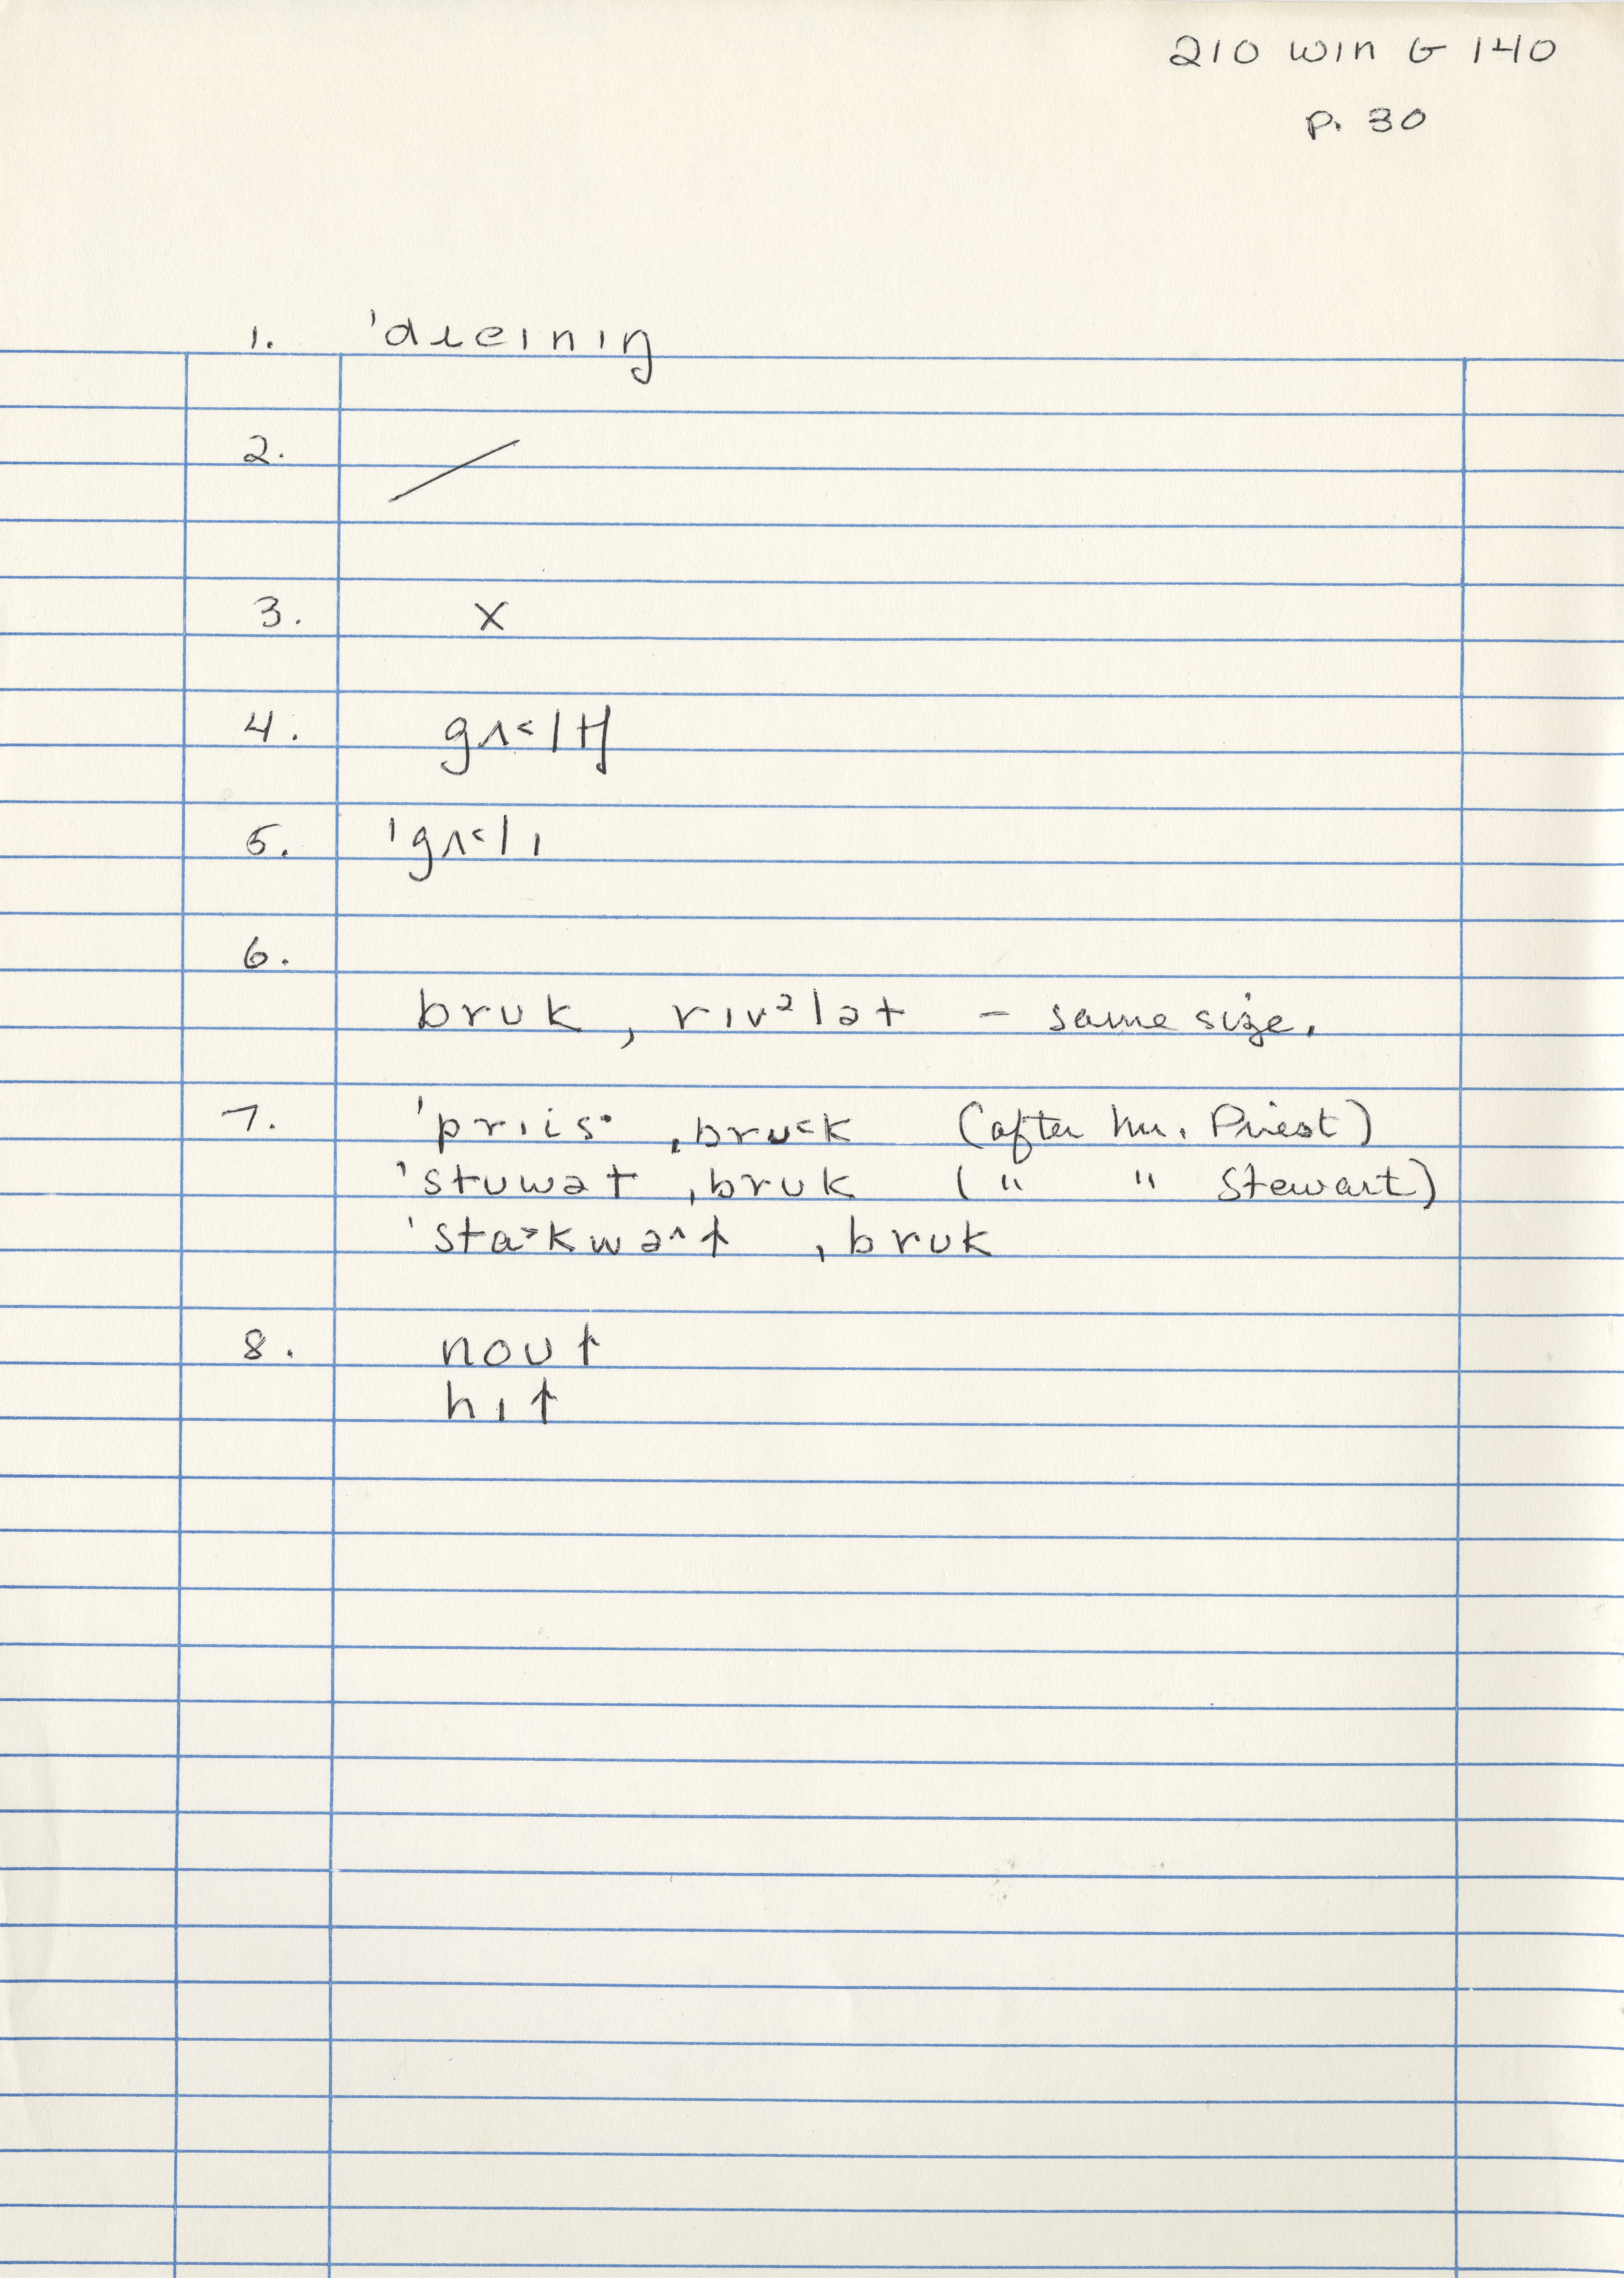 210 Win G 140
p. 30
1. ˈdɹeɪnɪŋ
2. /
3. X
4. gʌ˂ltʃ
5. ˈgʌ˂lɪ
6.
brʊk, rɪvᵊlət – same size.
7. ˈpriis· ˌbrʊ˂k (after Mr. Priest)
ˈstuwət ˌbrʊk ( " " Stewart)
ˈsta˃kwə^t ˌbrʊk
8. noʊt
hɪt